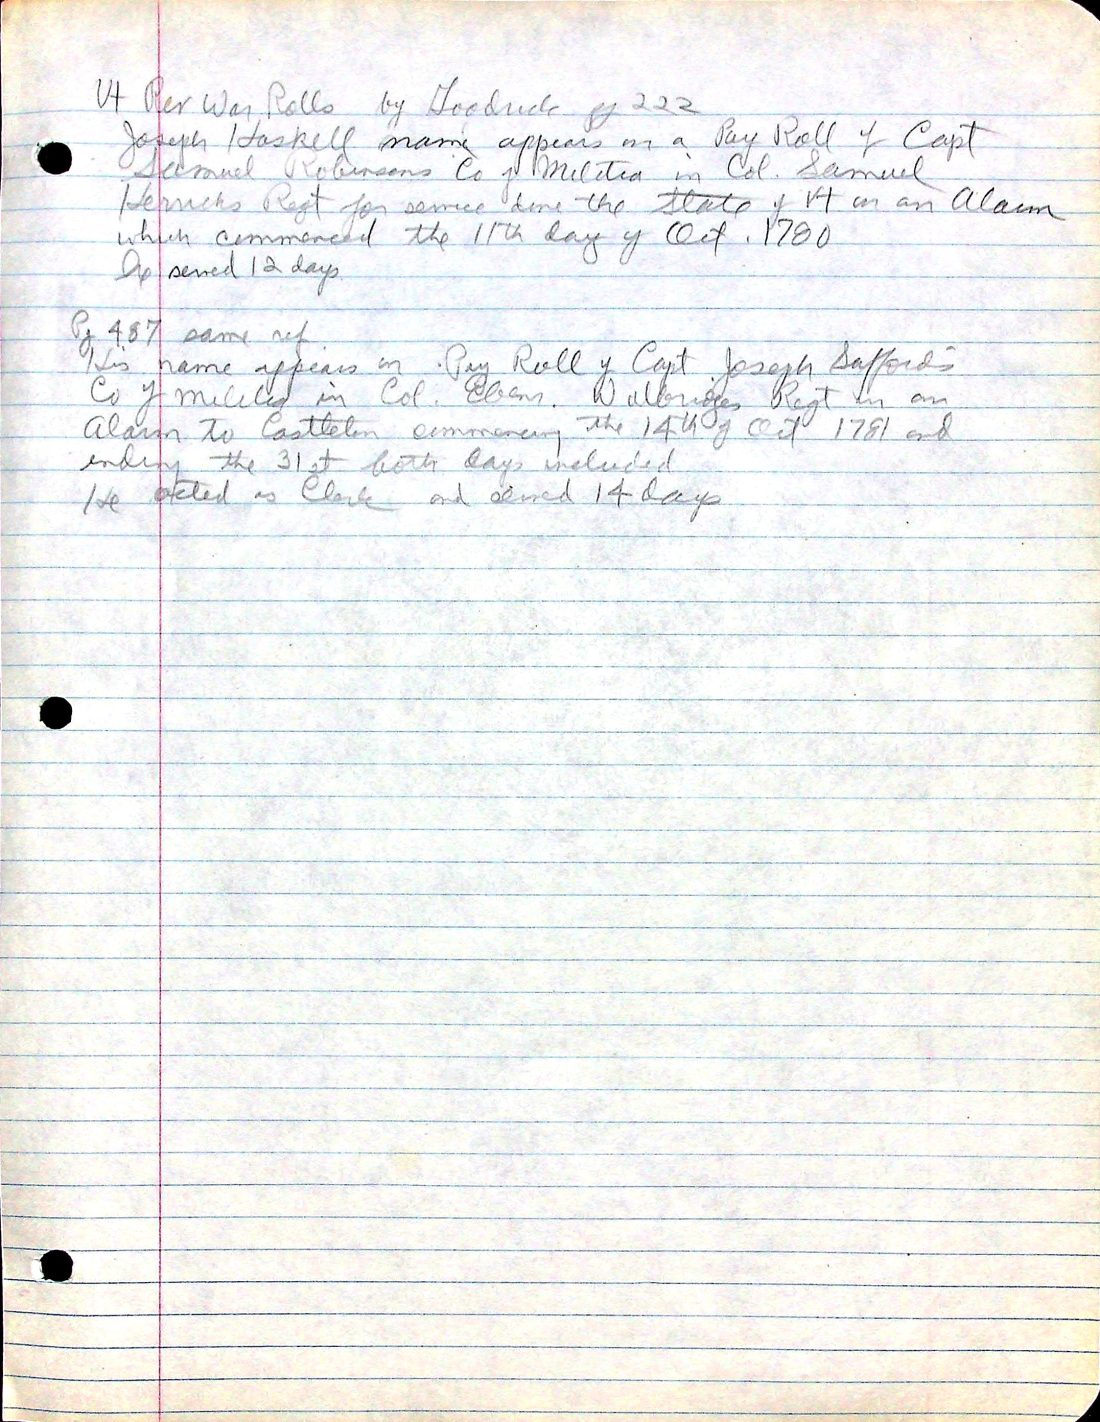 Vt Rev War Rolls by Goodrich pg 222
Joseph Haskell name appears on a Pay Roll of Capt
Samuel Robinsons Co of Militia in Col. Samuel
Herricks Regt for service done the State of Vt in an Alarm
which commenced the 11th day of Oct. 1780
He served 12 days
Pg 487 same ref
His name appears on Pay Roll of Capt Joseph Safford's
Co of Militia in Col. Eben. Walbridges Regt in an
Alarm to Castleton commencing the 14th of Oct 1781 and
ending the 31st both days included
He acted as Clerk and served 14 days